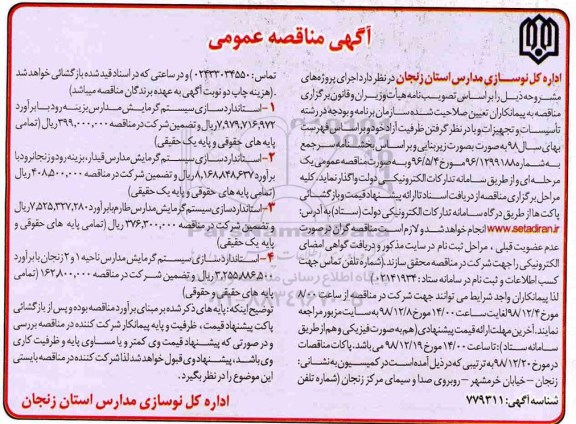 آگهی مناقصه عمومی
اداره کل نوسازی مدارس استان زنجان در نظر دارد اجرای پروژه‌های
مشروحه ذیل را براساس تصویب نامه هیأت وزیران و قانون برگزاری
مناقصه به پیمانکاران تعیین صلاحیت شده سازمان برنامه و بودجه در رشته
تأسیسات و تجهیزات و با در نظر گرفتن ظرفیت آزاد خود و براساس فهرست
بهای سال ۹۸ به صورت بصورت زیر بنایی و بر اساس بخشنامه سرجمع
به شماره ۹۶/۱۲۹۹۱۸۸ مورخ ۹۶/۵/۴ و به صورت مناقصه عمومی یک
مرحله‌ای و از طریق سامانه تدارکات الکترونیکی دولت واگذار نماید. کلیه
مراحل برگزاری مناقصه از دریافت اسناد تا ارائه پیشنهاد قیمت و بازگشائی
پاکت‌ها از طریق درگاه سامانه تدارکات الکترونیکی دولت (ستاد) به آدرس:
www.setadiran.ir انجام خواهد شد و لازم است مناقصه گران در صورت
عدم عضویت قبلی ، مراحل ثبت نام در سایت مذکور و دریافت گواهی امضای
الکترونیکی را جهت شرکت در مناقصه محقق سازند. (شماره تلفن تماس جهت
کسب اطلاعات و ثبت نام در سامانه ستاد: ۰۲۱۴۱۹۳۴)
لذا پیمانکاران واجد شرایط می توانند جهت شرکت در مناقصه از ساعت ۸:۰۰
مورخ ۹۸/۱۲/۴ لغایت ساعت ۱۴:۰۰ مورخ ۹۸/۱۲/۸ به سایت مزبور مراجعه
نمایند. آخرین مهلت ارائه قیمت پیشنهادی (هم به صورت فیزیکی و هم از طریق
سامانه ستاد): تا ساعت ۱۴:۰۰ مورخ ۹۸/۱۲/۱۹ می باشد. پاکات مناقصات
در مورخ ۹۸/۱۲/۲۰ به ترتیبی که در ذیل آمده است در کمیسیون به نشانی:
زنجان - خیابان خرمشهر - روبروی صدا و سیمای مرکز زنجان (شماره تلفن
شناسه آگهی: ۷۷۹۳۱۱
تماس: ۰۲۴۳۳۰۳۴۵۵۰) و در ساعتی که در اسناد قید شده بازگشائی خواهد شد
.(هزینه چاپ دو نوبت آگهی به عهده برندگان مناقصه میباشد)
۱- استانداردسازی سیستم گرمایش مدارس بزینه رود با برآورد
۷,۹۷۹,۷۱۶,۹۷۲ ریال و تضمین شرکت در مناقصه ۳۹۹,۰۰۰,۰۰۰ ریال (تمامی
پایه های حقوقی و پایه یک حقیقی)
۲- استانداردسازی سیستم گرمایش مدارس قیدار، بزینه رود و زنجانرود با
برآورد ۸,۱۶۸,۸۴۸,۶۳۷ ریال و تضمین شرکت در مناقصه ۴۰۸,۵۰۰,۰۰۰ ریال
(تمامی پایه های حقوقی و پایه یک حقیقی)
۳- استانداردسازی سیستم گرمایش مدارس طارم با برآورد ۷,۵۲۵,۳۲۷,۲۸۰ ریال
و تضمین شرکت در مناقصه ۳۷۶,۳۰۰,۰۰۰ ریال (تمامی پایه های حقوقی و
پایه یک حقیقی)
۴- استانداردسازی سیستم گرمایش مدارس ناحیه ۱ و ۲ زنجان با برآورد
۳,۲۵۵,۸۸۶,۵۰۰ ریال و تضمین شرکت در مناقصه ۱۶۲,۸۰۰,۰۰۰ ریال (تمامی
پایه های حقیقی و حقوقی)
توضیح اینکه: پایه های ذکر شده بر مبنای برآورد مناقصه بوده و پس از بازگشائی
پاکت پیشنهاد قیمت ، ظرفیت و پایه پیمانکار شرکت کننده در مناقصه بررسی
و در صورتی که پیشنهاد قیمت وی کمتر و یا مساوی پایه و ظرفیت کاری
وی باشد، پیشنهاد وی قبول خواهد شد لذا شرکت کننده در مناقصه بایستی
این موضوع را در نظر بگیرد .
اداره کل نوسازی مدارس استان زنجان